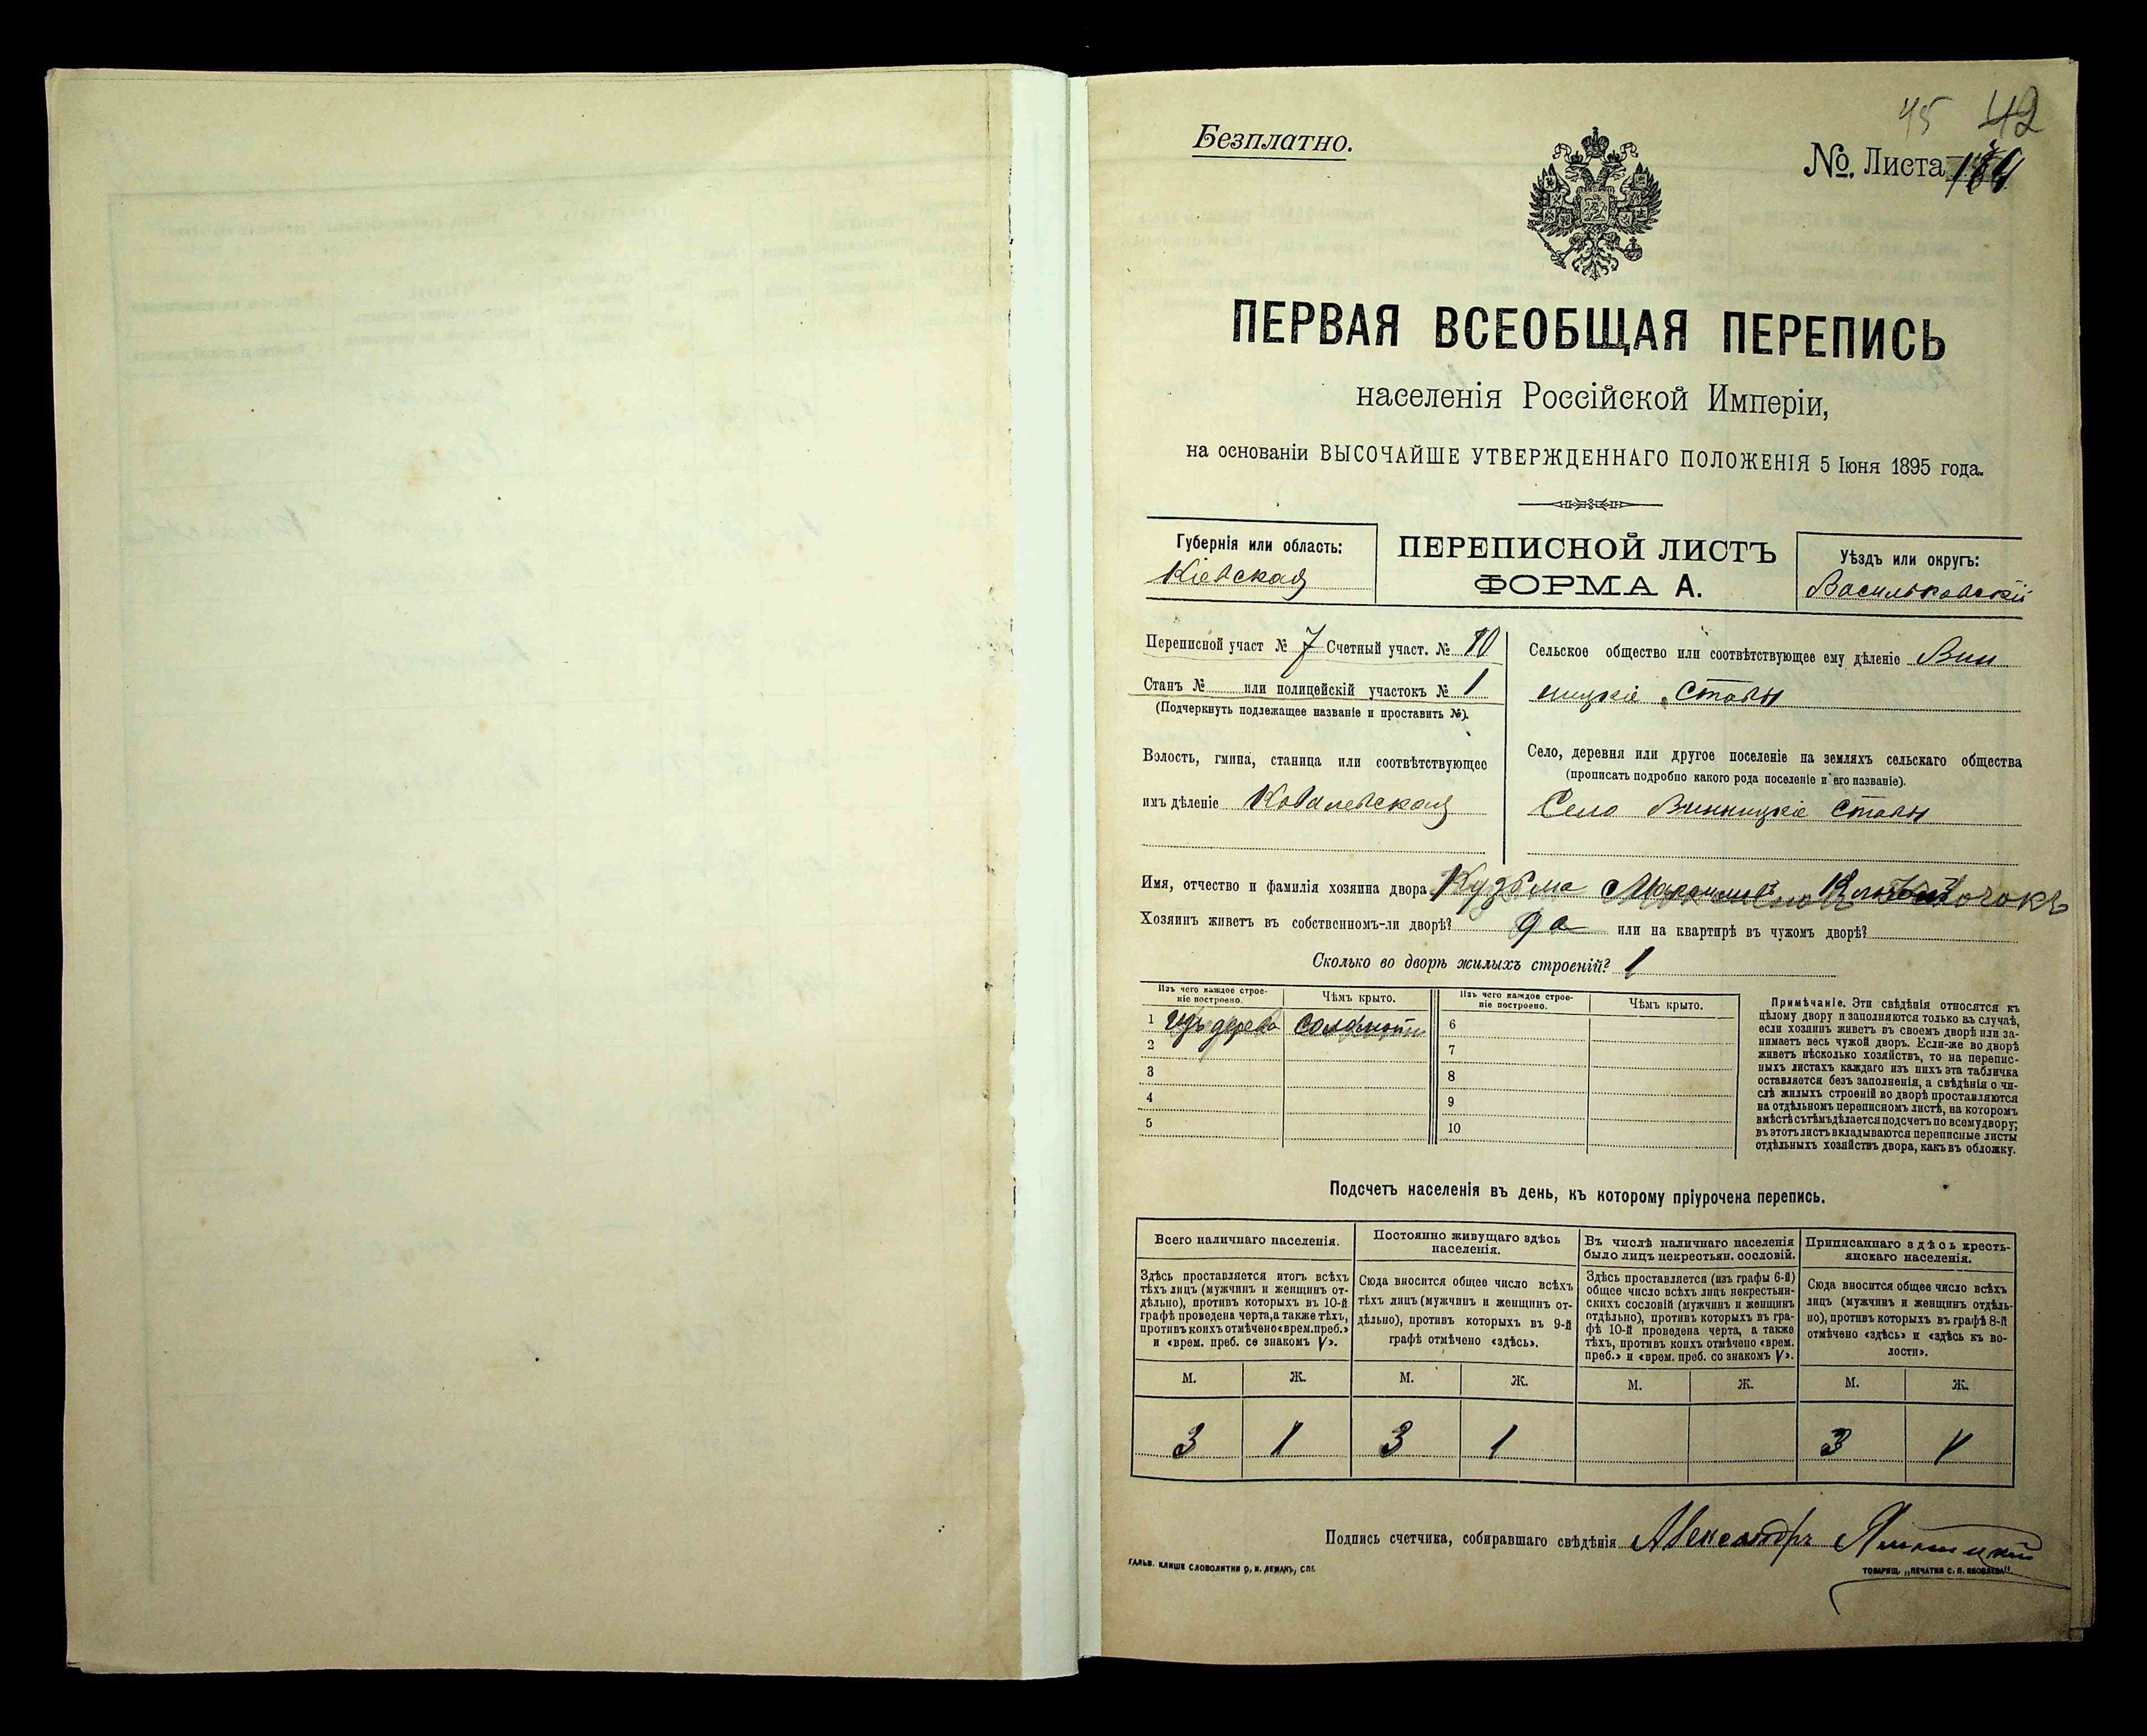 45 42
Безплатно.
№. Листа
ПЕРВАЯ ВСЕОБЩАЯ ПЕРЕПИСЬ
населенія Россійской Имперіи,
на основаніи ВЫСОЧАЙШЕ УТВЕРЖДЕННАГО ПОЛОЖЕНІЯ 5 Іюня 1895 года.
Губернія или область:
Кіевская
ПЕРЕПИСНОЙ ЛИСТЪ
ФОРМА А.
Уѣздъ или округъ:
Васильковскій
Переписной участ № 7 Счетный участ. № 10
Станъ № или полицейскій участокъ № 1
(Подчеркнуть подлежащее названіе и проставить №).
Волость, гмина, станица или соотвѣтствующее
имъ дѣленіе Ковалевская
Сельское общество или соотвѣтствующее ему дѣленіе Вин
ницкіе Ставы
Село, деревня или другое поселеніе на земляхъ сельскаго общества
(прописать подробно какого рода поселеніе и его названіе).
Село Винницкіе Ставы
Имя, отчество и фамилія хозяина двора Кузьма
Хозяинъ живетъ въ собственномъ-ли дворѣ? да или на квартирѣ въ чужомъ дворѣ?
Сколько во дворѣ жилыхъ строеній? 1
Изъ чего каждое строе-
ніе построено.
Чѣмъ крыто.
Изъ чего каждое строе-
ніе построено.
Чѣмъ крыто.
1 изъ дерева соломой
2
3
4
5
6
7
8
9
10
Примѣчаніе. Эти свѣдѣнія относятся къ
цѣлому двору и заполняются только въ случаѣ,
если хозяинъ живетъ въ своемъ дворѣ или за-
нимаетъ весь чужой дворъ. Если-же во дворѣ
живетъ нѣсколько хозяйствъ, то на перепис-
ныхъ листахъ каждаго изъ нихъ эта табличка
оставляется безъ заполненія, а свѣдѣнія о чи-
слѣ жилыхъ строеній во дворѣ проставляются
на отдѣльномъ переписномъ листѣ, на которомъ
вмѣстѣ съ тѣмъ дѣлается подсчетъ по всему двору;
въ этотъ листъ вкладываются переписные листы
отдѣльныхъ хозяйствъ двора, какъ въ обложку.
Подсчетъ населенія въ день, къ которому пріурочена перепись.
Всего наличнаго населенія.
Здѣсь проставляется итогъ всѣхъ
тѣхъ лицъ (мужчинъ и женщинъ от-
дѣльно), противъ которыхъ въ 10-й
графѣ проведена черта, а также тѣхъ,
противъ коихъ отмѣчено «врем. преб.»
и «врем. преб. со знакомъ V».
Постоянно живущаго здѣсь
населенія.
Сюда вносится общее число всѣхъ
тѣхъ лицъ (мужчинъ и женщинъ от-
дѣльно), противъ которыхъ въ 9-й
графѣ отмѣчено «здѣсь».
Въ числѣ наличнаго населенія
было лицъ некрестьян. сословій.
Здѣсь проставляется (изъ графы 6-й)
общее число всѣхъ лицъ некрестьян-
скихъ сословій (мужчинъ и женщинъ
отдѣльно), противъ которыхъ въ гра-
фѣ 10-й проведена черта, а также
тѣхъ, противъ коихъ отмѣчено «врем.
преб.» и «врем. преб. со знакомъ V».
Приписаннаго здѣсь кресть-
янскаго населенія.
Сюда вносится общее число всѣхъ
лицъ (мужчинъ и женщинъ отдѣль-
но), противъ которыхъ въ графѣ 8-й
отмѣчено «здѣсь» и «здѣсь къ во-
лости».
М. Ж. М. Ж. М. Ж. М. Ж.
3 1 3 1 3 1
Подпись счетчика, собиравшаго свѣдѣнія Александръ
ГАЛЬВ. КЛИШЕ СЛОВОЛИТНИ О. И. ЛЕМАНЪ, СПБ.
ТОВАРИЩ. „ПЕЧАТНЯ С. П. ЯКОВЛЕВА".